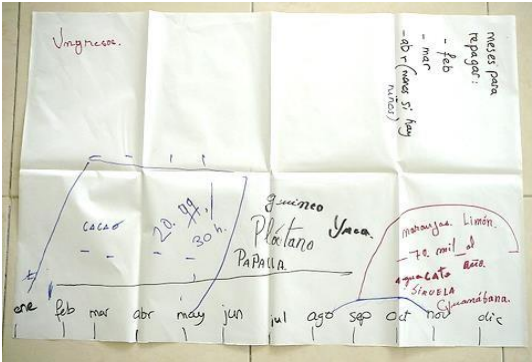 Ingresos.
meses para
repagar:
- feb
- mar
- abr (menos si hay
niños)
CACAO
30 h.
guineo
Plátano
Yuca.
PAPALLA.
naranjas. Limón.
70. mil al
año.
aguacate
SIRUELA
Guanábana.
ene feb mar abr may jun jul ago sep oct nov dic